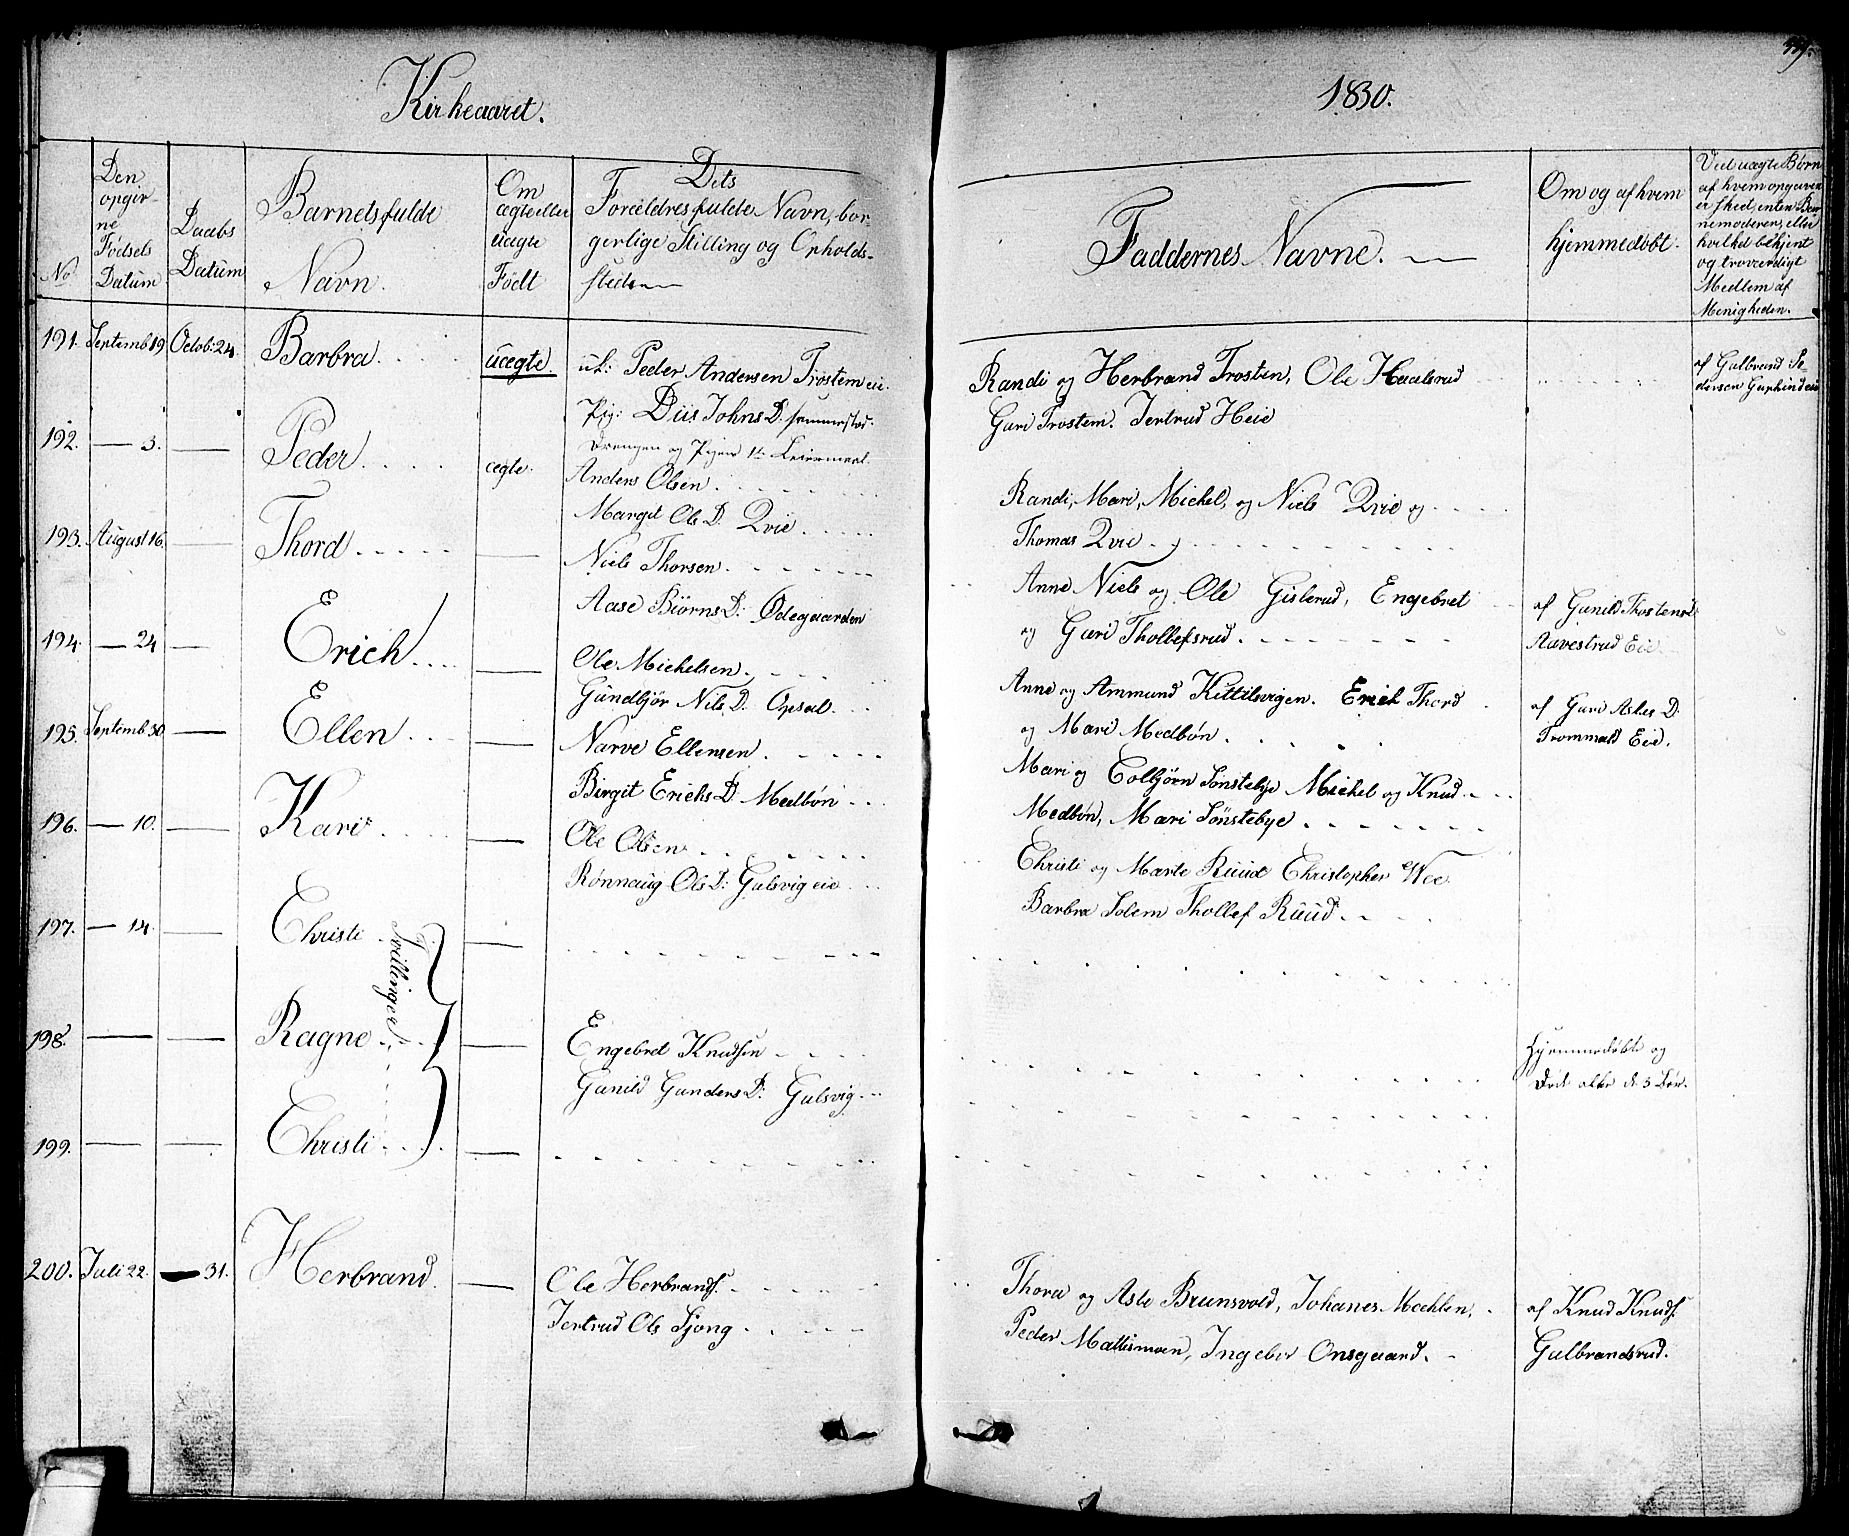 Kirkeaaret.
1830.
No
Den opgivne Fødsels Datum
Daabs Datum
Barnets fulde Navn.
Om ægte eller uægte Født
Dets Forældres fulde Navn, borgerlige Stilling og Opholdssted
Faddernes Navne.
Om og af hvem hjemmedøbt.
Ved uægte Børn af hvem opgiven er skeed, enten Barnemoderen, eller hvilket bekjent og troværdigt Medlem af Menigheden.
191. Septemb 19 Octob: 24. Barbra. uægte. uk: Peder Andersen Trostem eie.
Pig: Johns D. sammestød.
Drengen og Pigens 1te Leiermaal.
Randi og Herbrand Trosten, Ole
Guri Trostem. Jertrud Heie
af Gulbrand Pedersen
192. — 3. — Peder. ægte. Anders Olsen.
Margit Ols D. Qvie.
Randi, Mari, Michel, og Niels Qvie og
Thomas Qvie.
193. August 16. — Thord — Niels Thorsen.
Aase Biørns D: Ødegaarden
Anne Niels og Ole Gislerud, Engebret
og Guri Thollefsrud.
af Gunild Thostensd
Aavestrud Eie
194. — 24 — Erich — Ole Michelsen.
Gundbjør Nils D. Opsal.
Anne og Ammund Kittilsvigen. Erich Thord
og Mari Medbøn.
af Guri Asles D.
Trommald Eie.
195. Septemb 30. — Ellen — Narve Ellensen.
Birgit Erichs D. Medbøn
Mari og Colbjørn Sønstebye Michel og Knud
Medbøn, Mari Sønstebye
196. — 10. — Kari — Ole Olsen
Rønnaug Ols D: Gulsvig eie
Christi og Marte Ruud Christopher Wee
Barbra Solem Thollef Ruud.
197. — 14. — Christi —
Tvillinger
198. — — Ragne — Engebret Knudsen
Gunild Gunders D: Gulsvig
Hjemmedøbte og
Døde alle de 3 Bør.
199. — — Christi —
200. Juli 22. — 31. Herbrand — Ole Herbrands.
Jertrud Ols Sjong
Thora og Asle Brunsvold, Johanes Moehlen,
Peder Mattismoen, Ingebor Onsgaard.
af Knud Knuds.
Gulbrandsrud.